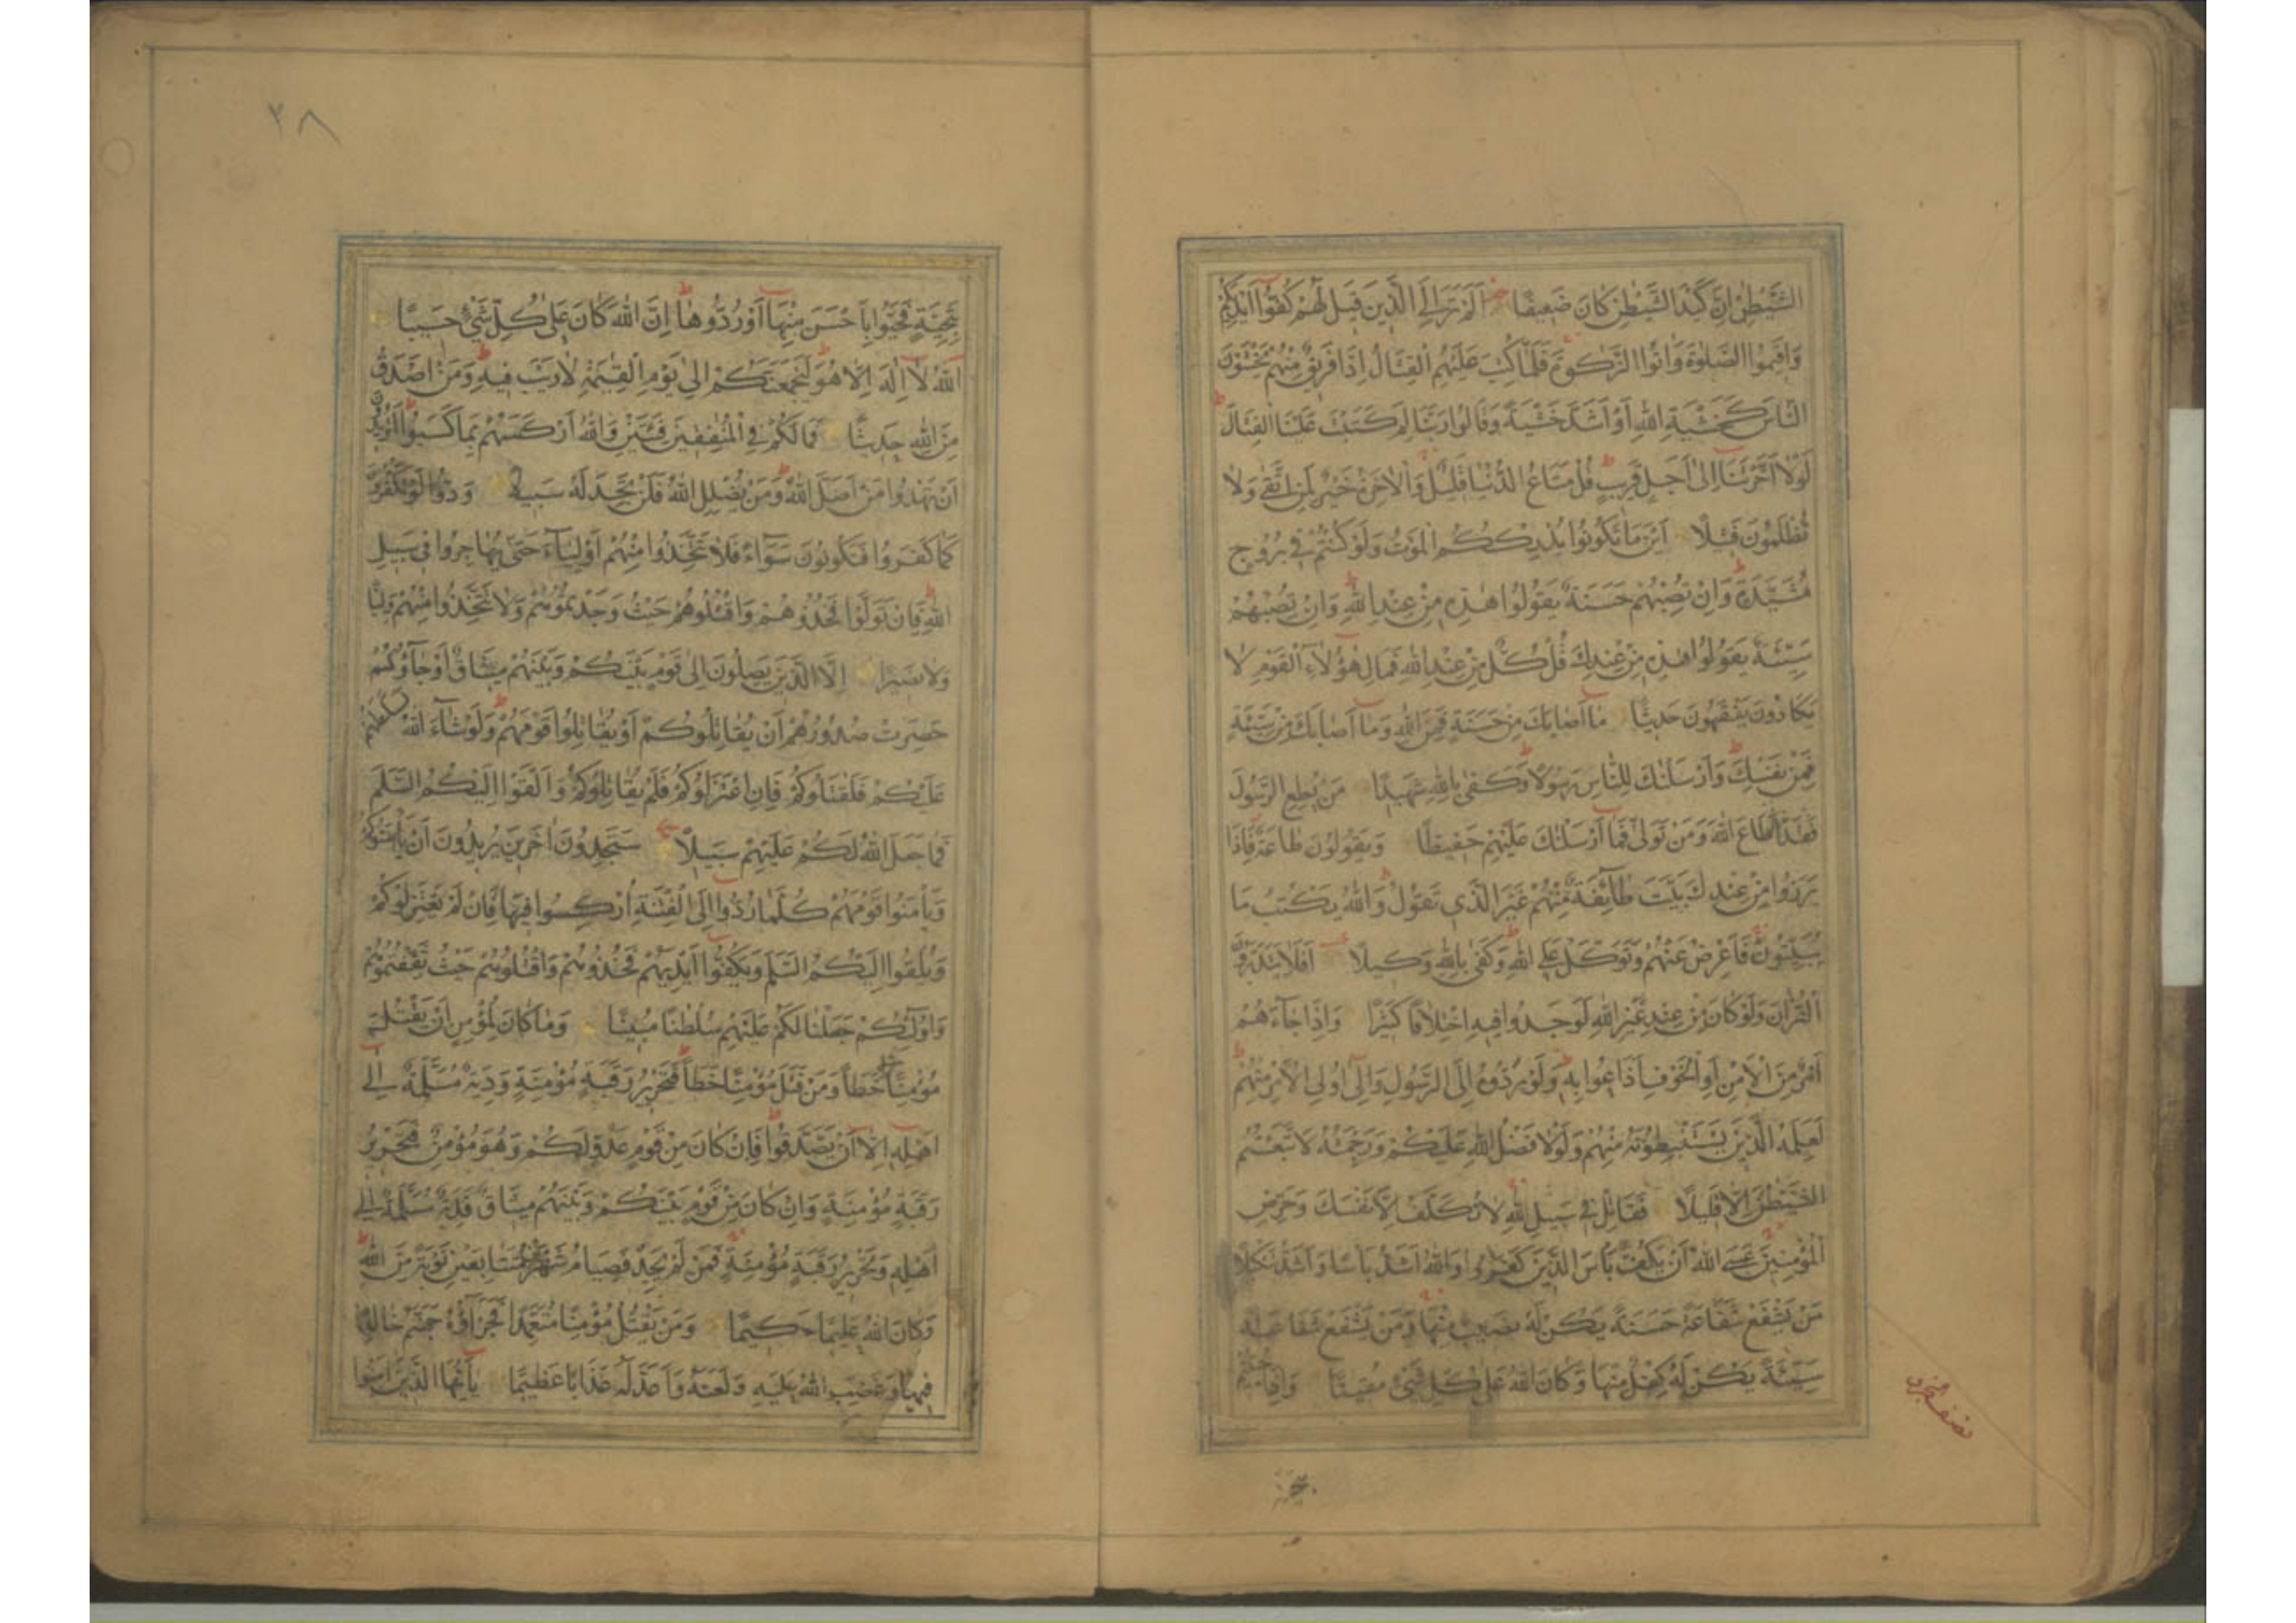 الشَّيْطٰنِ اِنَّ كَيْدَ الشَّيْطٰنِ كَانَ ضَعِيفًا اَلَمْ تَرَ اِلَى الَّذِينَ قِيلَ لَهُمْ كُفُّوا اَيْدِيَكُمْ
وَاَقِيمُوا الصَّلٰوةَ وَاٰتُوا الزَّكٰوةَ فَلَمَّا كُتِبَ عَلَيْهِمُ الْقِتَالُ اِذَا فَرِيقٌ مِنْهُمْ يَخْشَوْنَ
النَّاسَ كَخَشْيَةِ اللّٰهِ اَوْ اَشَدَّ خَشْيَةً وَقَالُوا رَبَّنَا لِمَ كَتَبْتَ عَلَيْنَا الْقِتَالَ
لَوْلَا اَخَّرْتَنَا اِلٰى اَجَلٍ قَرِيبٍ قُلْ مَتَاعُ الدُّنْيَا قَلِيلٌ وَالْاٰخِرَةُ خَيْرٌ لِمَنِ اتَّقٰى وَلَا
تُظْلَمُونَ فَتِيلًا اَيْنَ مَا تَكُونُوا يُدْرِكْكُمُ الْمَوْتُ وَلَوْ كُنْتُمْ فِي بُرُوجٍ
مُشَيَّدَةٍ وَاِنْ تُصِبْهُمْ حَسَنَةٌ يَقُولُوا هٰذِهِ مِنْ عِنْدِ اللّٰهِ وَاِنْ تُصِبْهُمْ
سَيِّئَةٌ يَقُولُوا هٰذِهِ مِنْ عِنْدِكَ قُلْ كُلٌّ مِنْ عِنْدِ اللّٰهِ فَمَالِ هٰؤُلَاءِ الْقَوْمِ لَا
يَكَادُونَ يَفْقَهُونَ حَدِيثًا مَا اَصَابَكَ مِنْ حَسَنَةٍ فَمِنَ اللّٰهِ وَمَا اَصَابَكَ مِنْ سَيِّئَةٍ
فَمِنْ نَفْسِكَ وَاَرْسَلْنَاكَ لِلنَّاسِ رَسُولًا وَكَفٰى بِاللّٰهِ شَهِيدًا مَنْ يُطِعِ الرَّسُولَ
فَقَدْ اَطَاعَ اللّٰهَ وَمَنْ تَوَلّٰى فَمَا اَرْسَلْنَاكَ عَلَيْهِمْ حَفِيظًا وَيَقُولُونَ طَاعَةٌ فَاِذَا
بَرَزُوا مِنْ عِنْدِكَ بَيَّتَ طَائِفَةٌ مِنْهُمْ غَيْرَ الَّذِي تَقُولُ وَاللّٰهُ يَكْتُبُ مَا
يُبَيِّتُونَ فَاَعْرِضْ عَنْهُمْ وَتَوَكَّلْ عَلَى اللّٰهِ وَكَفٰى بِاللّٰهِ وَكِيلًا اَفَلَا يَتَدَبَّرُونَ
الْقُرْاٰنَ وَلَوْ كَانَ مِنْ عِنْدِ غَيْرِ اللّٰهِ لَوَجَدُوا فِيهِ اخْتِلَافًا كَثِيرًا وَاِذَا جَاءَهُمْ
اَمْرٌ مِنَ الْاَمْنِ اَوِ الْخَوْفِ اَذَاعُوا بِهِ وَلَوْ رَدُّوهُ اِلَى الرَّسُولِ وَاِلٰى اُولِي الْاَمْرِ مِنْهُمْ
لَعَلِمَهُ الَّذِينَ يَسْتَنْبِطُونَهُ مِنْهُمْ وَلَوْلَا فَضْلُ اللّٰهِ عَلَيْكُمْ وَرَحْمَتُهُ لَاتَّبَعْتُمُ
الشَّيْطٰنَ اِلَّا قَلِيلًا فَقَاتِلْ فِي سَبِيلِ اللّٰهِ لَا تُكَلَّفُ اِلَّا نَفْسَكَ وَحَرِّضِ
الْمُؤْمِنِينَ عَسَى اللّٰهُ اَنْ يَكُفَّ بَأْسَ الَّذِينَ كَفَرُوا وَاللّٰهُ اَشَدُّ بَأْسًا وَاَشَدُّ تَنْكِيلًا
مَنْ يَشْفَعْ شَفَاعَةً حَسَنَةً يَكُنْ لَهُ نَصِيبٌ مِنْهَا وَمَنْ يَشْفَعْ شَفَاعَةً
سَيِّئَةً يَكُنْ لَهُ كِفْلٌ مِنْهَا وَكَانَ اللّٰهُ عَلٰى كُلِّ شَيْءٍ مُقِيتًا وَاِذَا حُيِّيتُمْ
نصف الجزء
بتحية
٢٨
بِتَحِيَّةٍ فَحَيُّوا بِاَحْسَنَ مِنْهَا اَوْ رُدُّوهَا اِنَّ اللّٰهَ كَانَ عَلٰى كُلِّ شَيْءٍ حَسِيبًا
اَللّٰهُ لَا اِلٰهَ اِلَّا هُوَ لَيَجْمَعَنَّكُمْ اِلٰى يَوْمِ الْقِيٰمَةِ لَا رَيْبَ فِيهِ وَمَنْ اَصْدَقُ
مِنَ اللّٰهِ حَدِيثًا فَمَا لَكُمْ فِي الْمُنَافِقِينَ فِئَتَيْنِ وَاللّٰهُ اَرْكَسَهُمْ بِمَا كَسَبُوا اَتُرِيدُونَ
اَنْ تَهْدُوا مَنْ اَضَلَّ اللّٰهُ وَمَنْ يُضْلِلِ اللّٰهُ فَلَنْ تَجِدَ لَهُ سَبِيلًا وَدُّوا لَوْ تَكْفُرُونَ
كَمَا كَفَرُوا فَتَكُونُونَ سَوَاءً فَلَا تَتَّخِذُوا مِنْهُمْ اَوْلِيَاءَ حَتّٰى يُهَاجِرُوا فِي سَبِيلِ
اللّٰهِ فَاِنْ تَوَلَّوْا فَخُذُوهُمْ وَاقْتُلُوهُمْ حَيْثُ وَجَدْتُمُوهُمْ وَلَا تَتَّخِذُوا مِنْهُمْ وَلِيًّا
وَلَا نَصِيرًا اِلَّا الَّذِينَ يَصِلُونَ اِلٰى قَوْمٍ بَيْنَكُمْ وَبَيْنَهُمْ مِيثَاقٌ اَوْ جَاؤُكُمْ
حَصِرَتْ صُدُورُهُمْ اَنْ يُقَاتِلُوكُمْ اَوْ يُقَاتِلُوا قَوْمَهُمْ وَلَوْ شَاءَ اللّٰهُ لَسَلَّطَهُمْ
عَلَيْكُمْ فَلَقَاتَلُوكُمْ فَاِنِ اعْتَزَلُوكُمْ فَلَمْ يُقَاتِلُوكُمْ وَاَلْقَوْا اِلَيْكُمُ السَّلَمَ
فَمَا جَعَلَ اللّٰهُ لَكُمْ عَلَيْهِمْ سَبِيلًا سَتَجِدُونَ اٰخَرِينَ يُرِيدُونَ اَنْ يَأْمَنُوكُمْ
وَيَأْمَنُوا قَوْمَهُمْ كُلَّمَا رُدُّوا اِلَى الْفِتْنَةِ اُرْكِسُوا فِيهَا فَاِنْ لَمْ يَعْتَزِلُوكُمْ
وَيُلْقُوا اِلَيْكُمُ السَّلَمَ وَيَكُفُّوا اَيْدِيَهُمْ فَخُذُوهُمْ وَاقْتُلُوهُمْ حَيْثُ ثَقِفْتُمُوهُمْ
وَاُولٰئِكُمْ جَعَلْنَا لَكُمْ عَلَيْهِمْ سُلْطَانًا مُبِينًا وَمَا كَانَ لِمُؤْمِنٍ اَنْ يَقْتُلَ
مُؤْمِنًا اِلَّا خَطَأً وَمَنْ قَتَلَ مُؤْمِنًا خَطَأً فَتَحْرِيرُ رَقَبَةٍ مُؤْمِنَةٍ وَدِيَةٌ مُسَلَّمَةٌ اِلٰى
اَهْلِهِ اِلَّا اَنْ يَصَّدَّقُوا فَاِنْ كَانَ مِنْ قَوْمٍ عَدُوٍّ لَكُمْ وَهُوَ مُؤْمِنٌ فَتَحْرِيرُ
رَقَبَةٍ مُؤْمِنَةٍ وَاِنْ كَانَ مِنْ قَوْمٍ بَيْنَكُمْ وَبَيْنَهُمْ مِيثَاقٌ فَدِيَةٌ مُسَلَّمَةٌ اِلٰى
اَهْلِهِ وَتَحْرِيرُ رَقَبَةٍ مُؤْمِنَةٍ فَمَنْ لَمْ يَجِدْ فَصِيَامُ شَهْرَيْنِ مُتَتَابِعَيْنِ تَوْبَةً مِنَ اللّٰهِ
وَكَانَ اللّٰهُ عَلِيمًا حَكِيمًا وَمَنْ يَقْتُلْ مُؤْمِنًا مُتَعَمِّدًا فَجَزَاؤُهُ جَهَنَّمُ خَالِدًا
فِيهَا وَغَضِبَ اللّٰهُ عَلَيْهِ وَلَعَنَهُ وَاَعَدَّ لَهُ عَذَابًا عَظِيمًا يَا اَيُّهَا الَّذِينَ اٰمَنُوا